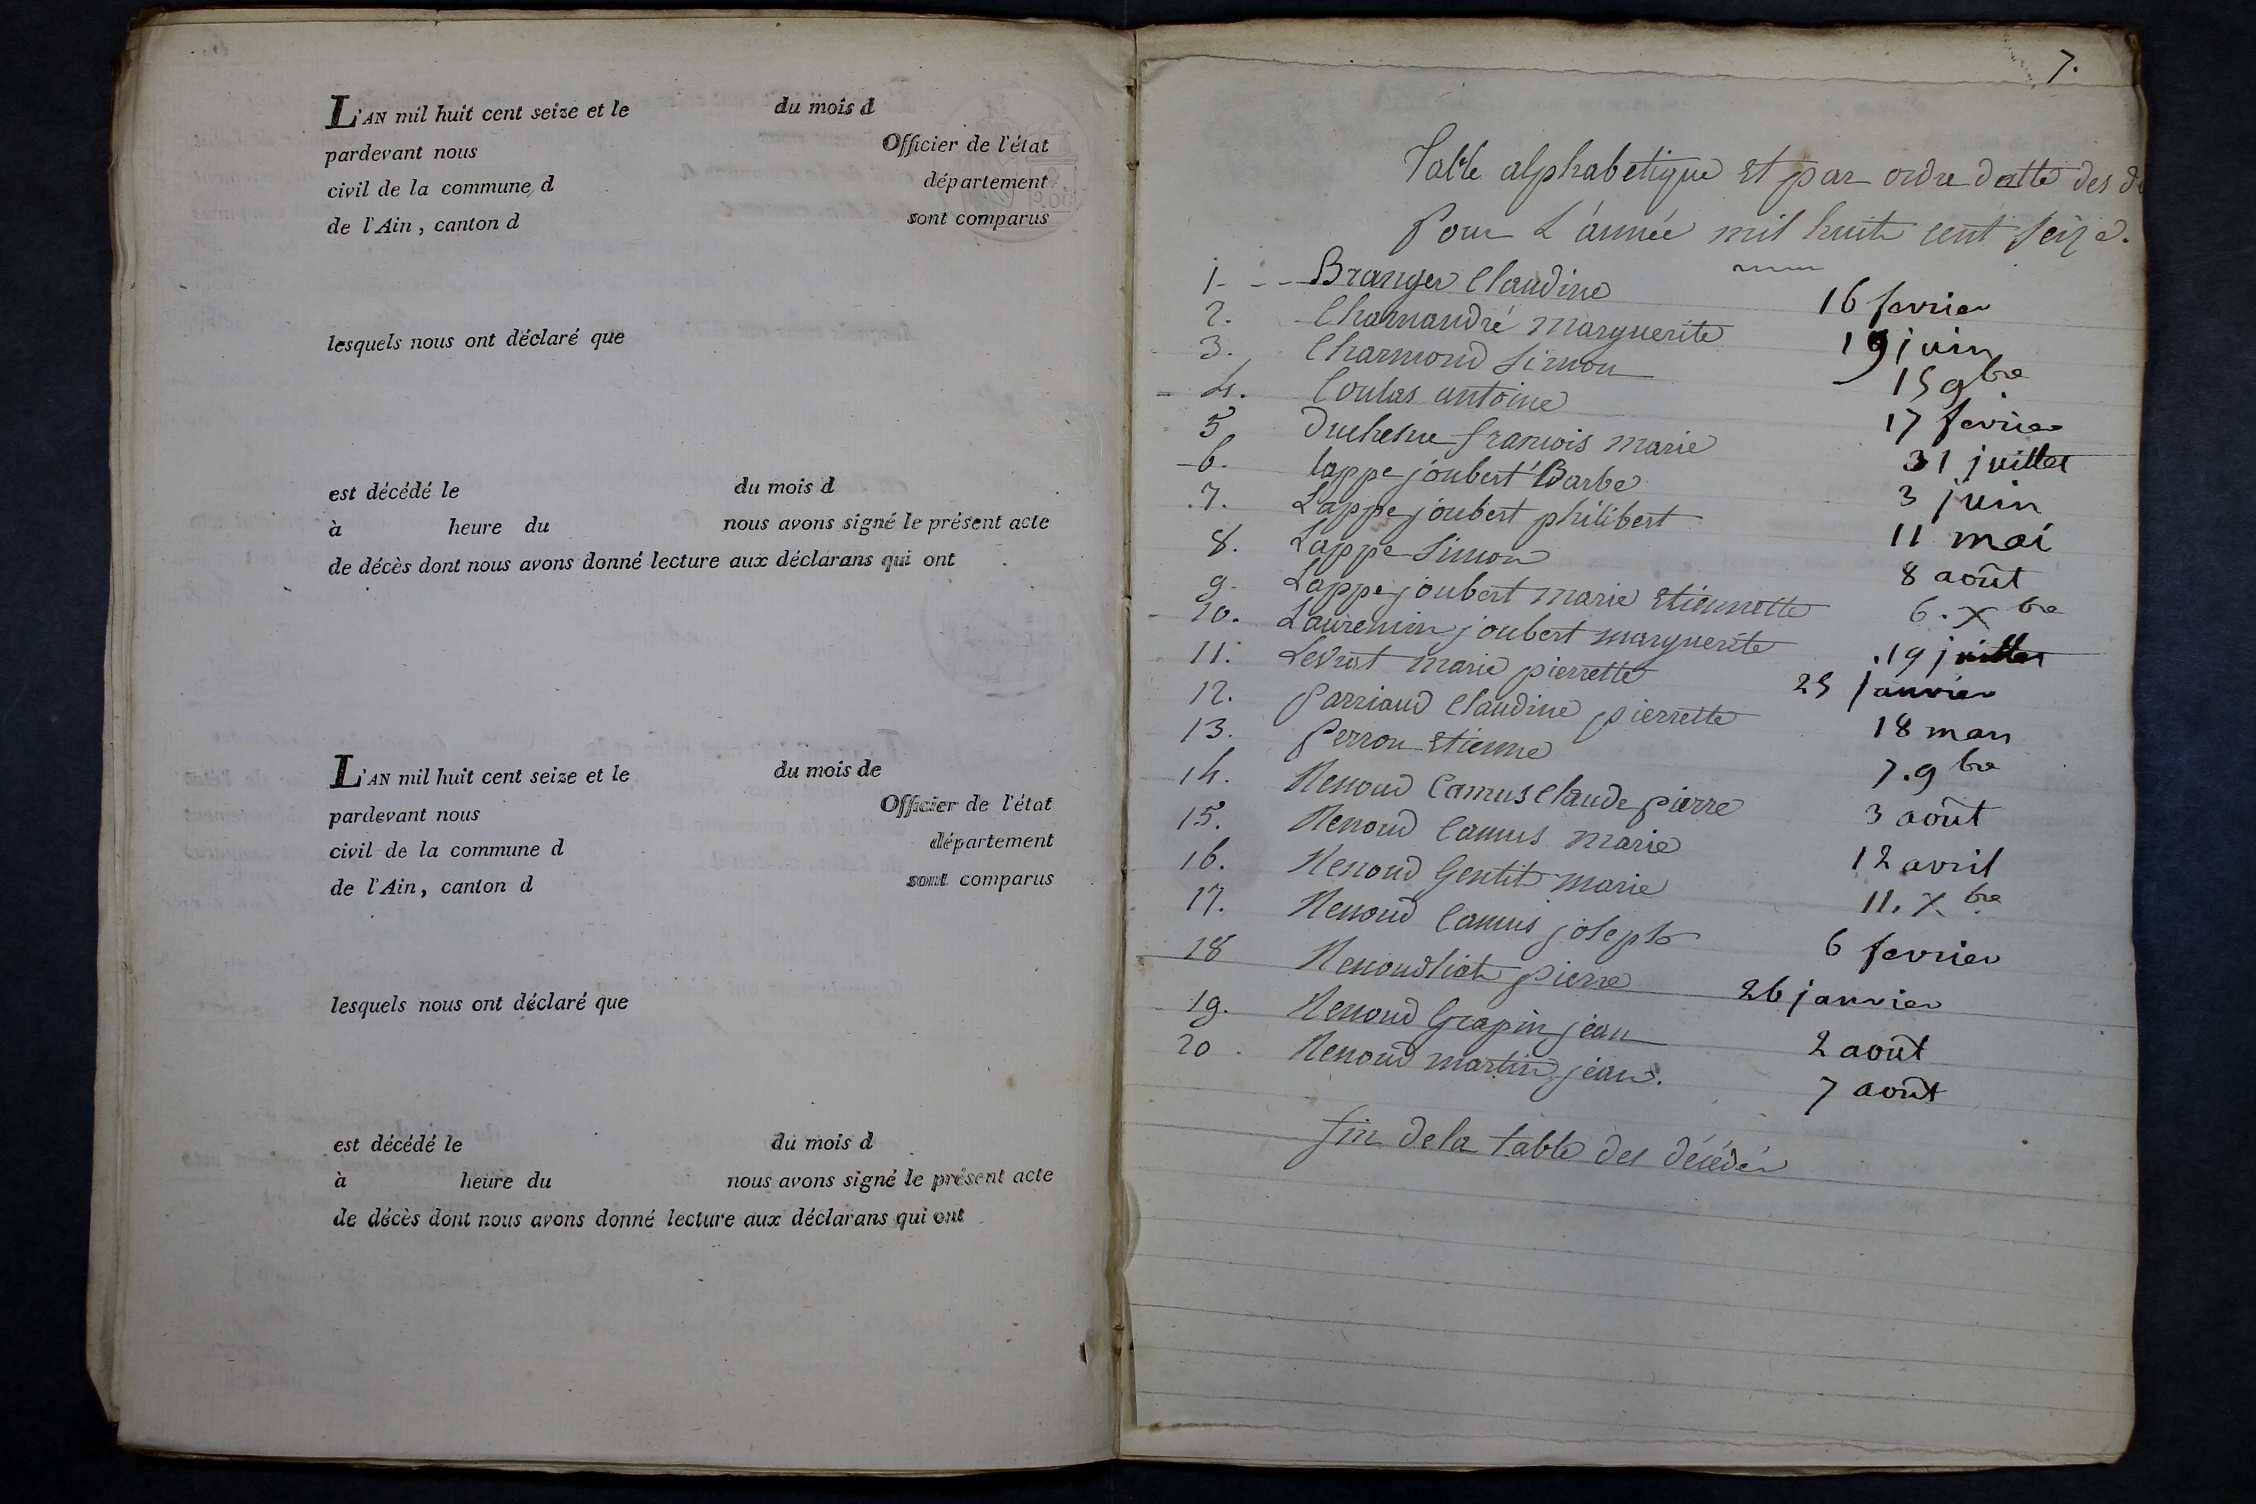 L'AN mil huit cent seize et le du mois d
pardevant nous Officier de l'état
civil de la commune d département
de l'Ain, canton d sont comparus
lesquels nous ont déclaré que
est décédé le du mois d
à heure du nous avons signé le présent acte
de décès dont nous avons donné lecture aux déclarans qui ont
L'AN mil huit cent seize et le du mois de
pardevant nous Officier de l'état
civil de la commune d département
de l'Ain, canton d sont comparus
lesquels nous ont déclaré que
est décédé le du mois d
à heure du nous avons signé le présent acte
de décès dont nous avons donné lecture aux déclarans qui ont
7.
Table alphabetique et par ordre datte des
pour L'année mil huit cent seize.
1 - - - Branger Claudine 16 fevrier
2. Chamandré marguerite 19 juin
3. Charmond Simon 15 9bre
4. Coulas antoine 17 fevrier
5 Duchesne francois marie 31 juillet
6. lappe joubert Barbe 3 juin
7. Lappe joubert philibert 11 mai
8. Lappe Simon 8 août
9. Lappe joubert marie Etiennette 6. Xbre
10. Laurencin joubert marguerite 19 juillet
11. Levrat marie pierrette 25 janvier
12. parriaud Claudine pierrette 18 mars
13. perron Etienne 7. 9bre
14. Renoud Camus Claude pierre 3 août
15. Renoud Camus marie 12 avril
16. Renoud Gentit marie 11. Xbre
17. Renoud Camus joseph 6 fevrier
18 Renoud liat pierre 26 janvier
19. Renoud Grapin jean 2 août
20 Renoud martin jean. 7 août
fin de la table des décédés